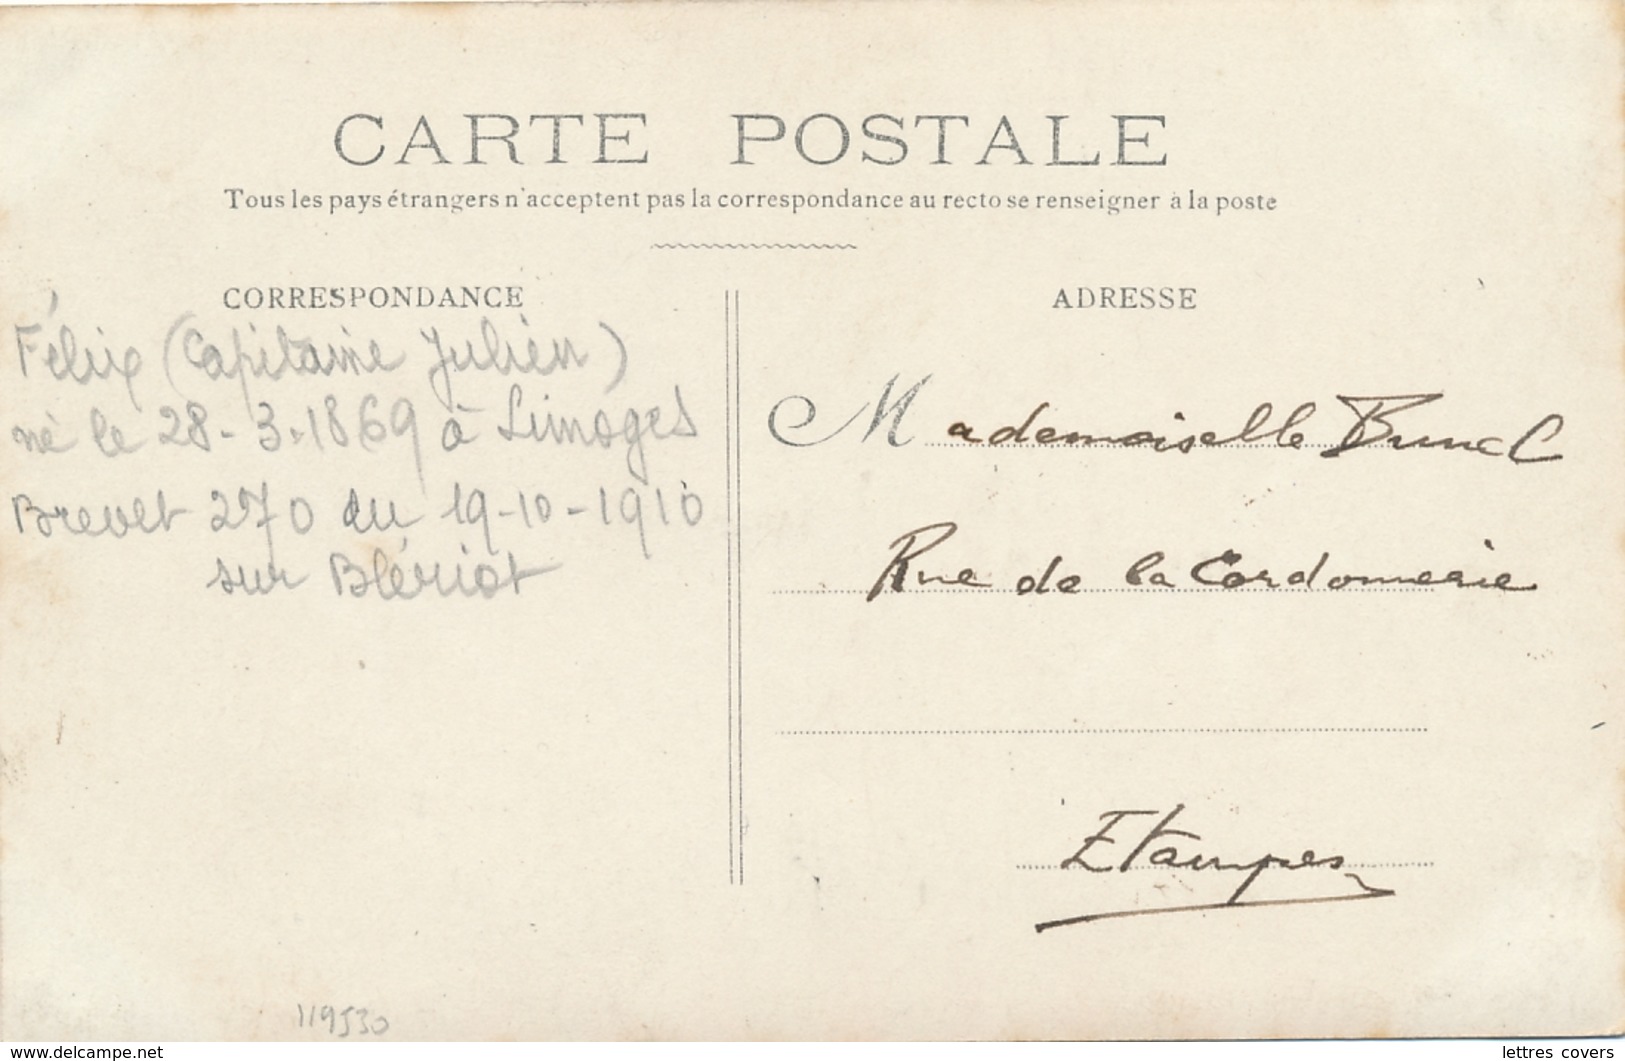 CARTE POSTALE
Tous les pays étrangers n'acceptent pas la correspondance au recto se renseigner à la poste
CORRESPONDANCE
Félix (Capitaine Julien)
né le 28-3-1869 à Limoges
Brevet 270 du 19-10-1910
sur Blériot
ADRESSE
Mademoiselle Brunel
Rue de la Cordonnerie
Etampes
119530
lettres covers